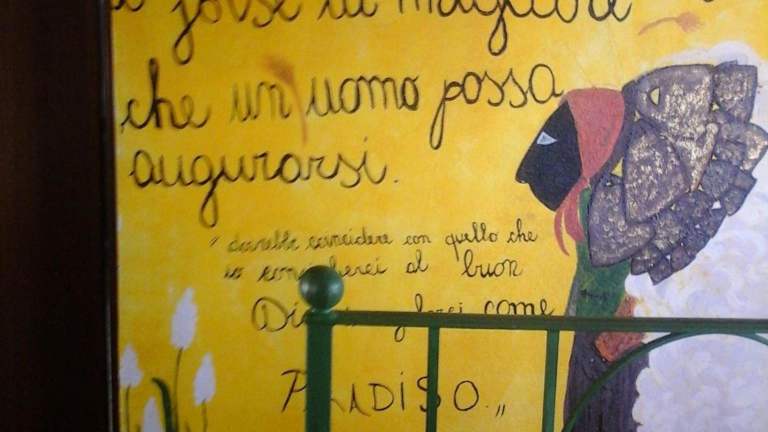 è forse la migliore
che un uomo possa
augurarsi.
"dovrebbe coincidere con quello che
io con al buon
Di come
PARADISO."